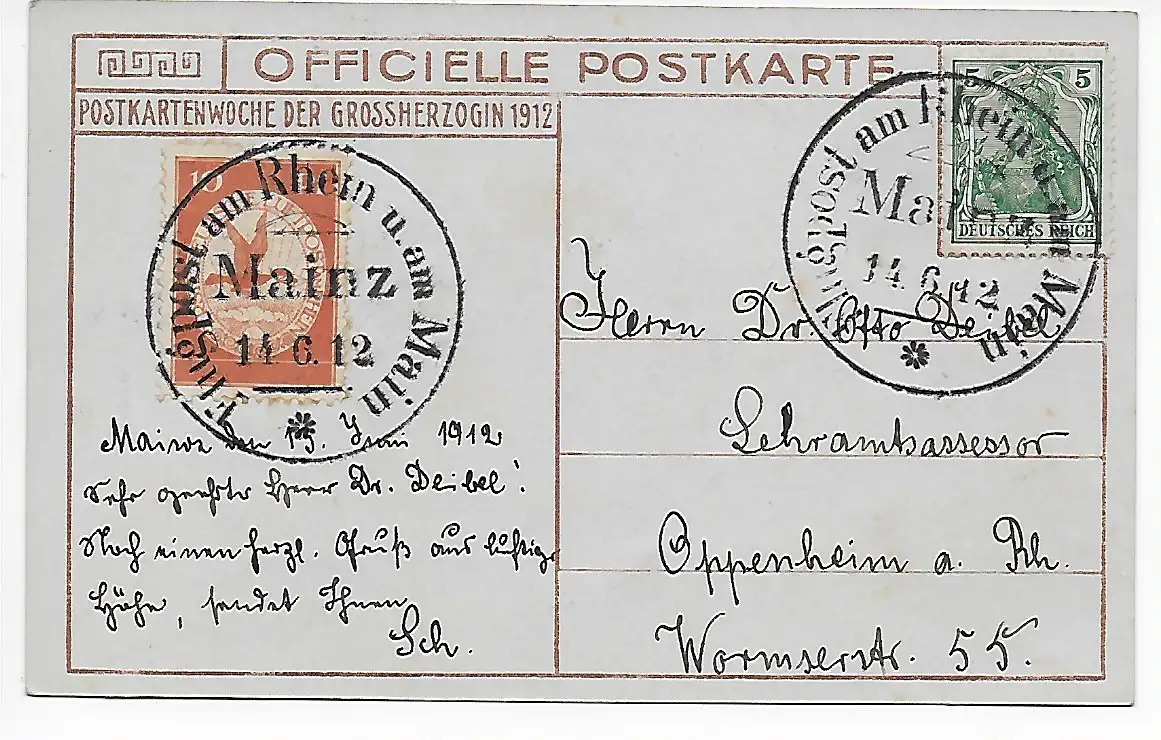 OFFICIELLE POSTKARTE
POSTKARTENWOCHE DER GROSSHERZOGIN 1912
10
Flugpost am Rhein u. am Main
Mainz
14.6.12
5 5
DEUTSCHES REICH
Flugpost am Rhein u. am Main
Mainz
14.6.12
Mainz den 15. Juni 1912
Sehr geehrter Herr Dr. Deibel!
Noch einen herzl. Gruß aus luftiger
Höhe, sendet Ihnen
Sch.
Herrn Dr. Otto Deibel
Lehramtsassessor
Oppenheim a. Rh.
Wormserstr. 55.